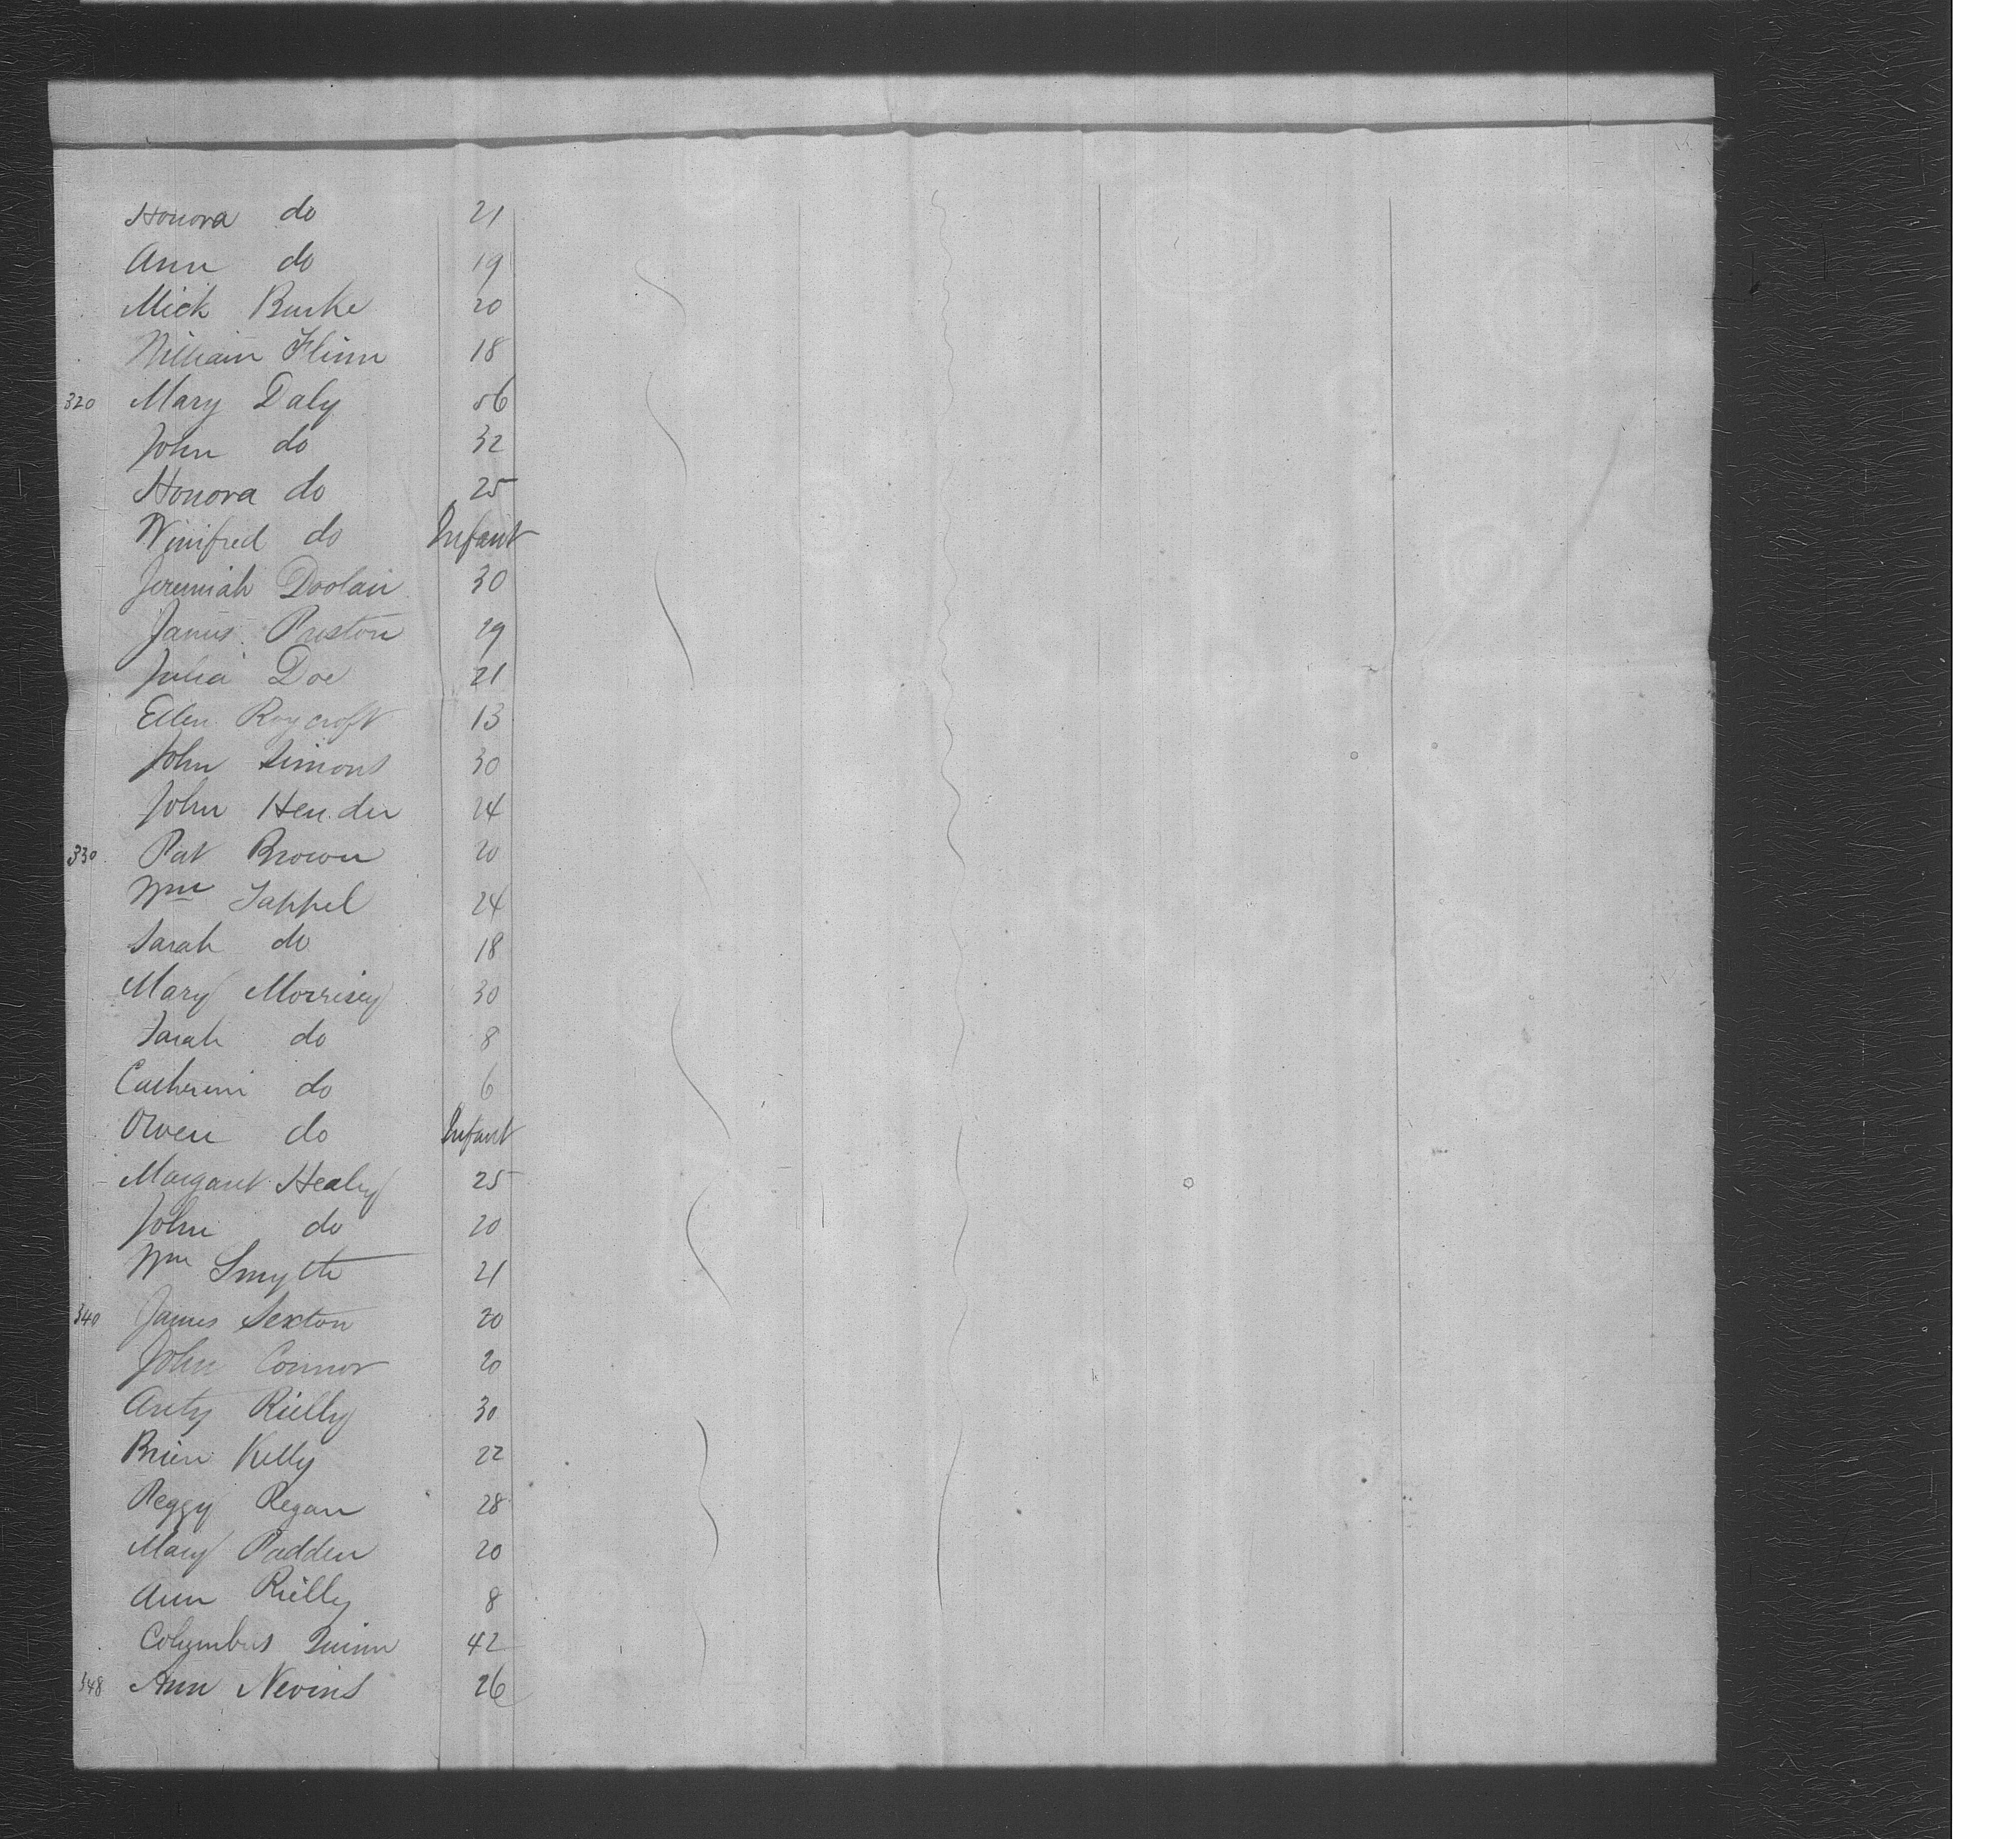 Honora do 21
Ann do 19
Mick Burke 20
William Flinn 18
320 Mary Daly 56
John do 32
Honora do 25
Winifred do Infant
Jeremiah Doolan 30
James Preston 29
Julia Doe 21
Ellen Roycroft 13
John Simons 30
John Hender 24
330 Pat Brown 20
Wm Tappel 24
Sarah do 18
Mary Morrisey 30
Sarah do 8
Catherine do 6
Owen do Infant
Margaret Healy 25
John do 20
Wm Smyth 21
340 James Sexton 20
John Connor 20
Anty Rielly 30
Brien Kelly 22
Peggy Regan 28
Mary Padden 20
Ann Rielly 8
Columbus Quinn 42
348 Ann Nevins 26